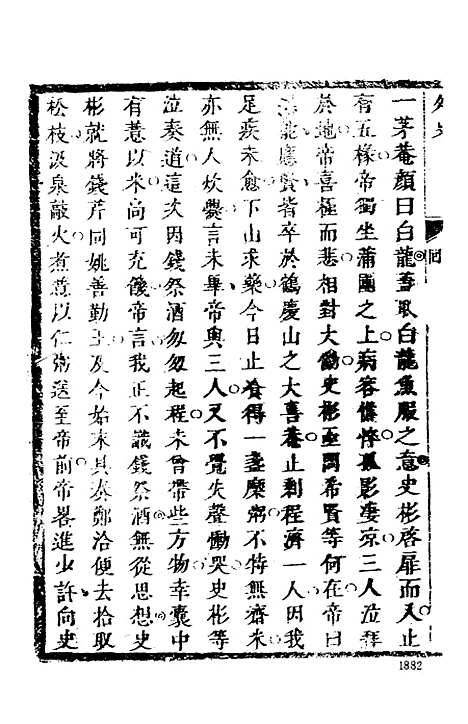 外史
回
一茅菴顏曰白龍蓋取白龍魚服之意史彬啓扉而入止
有五椽帝獨坐蒲團之上病容憔悴孤影凄凉三人泣拜
於地帝喜極而悲相對大慟史彬亟問希賢等何在帝曰
能應賢皆卒於鶴慶山之大喜菴止剩程濟一人因我
足疾未愈下山求藥今日止食得一盞糜粥不特無濟米
亦無人炊爨言未畢帝與三人又不覺失聲慟哭史彬等
泣奏道這次因錢祭酒匆匆起程未曾帶些方物幸囊中
有薏以米尚可充饑帝言我正不識錢祭酒無從思想史
彬就將錢芹同姚善勤王及今始末具奏鄭洽便去拾取
松枝汲泉敲火煮薏以仁粥送至帝前帝畧進少許向史
1882